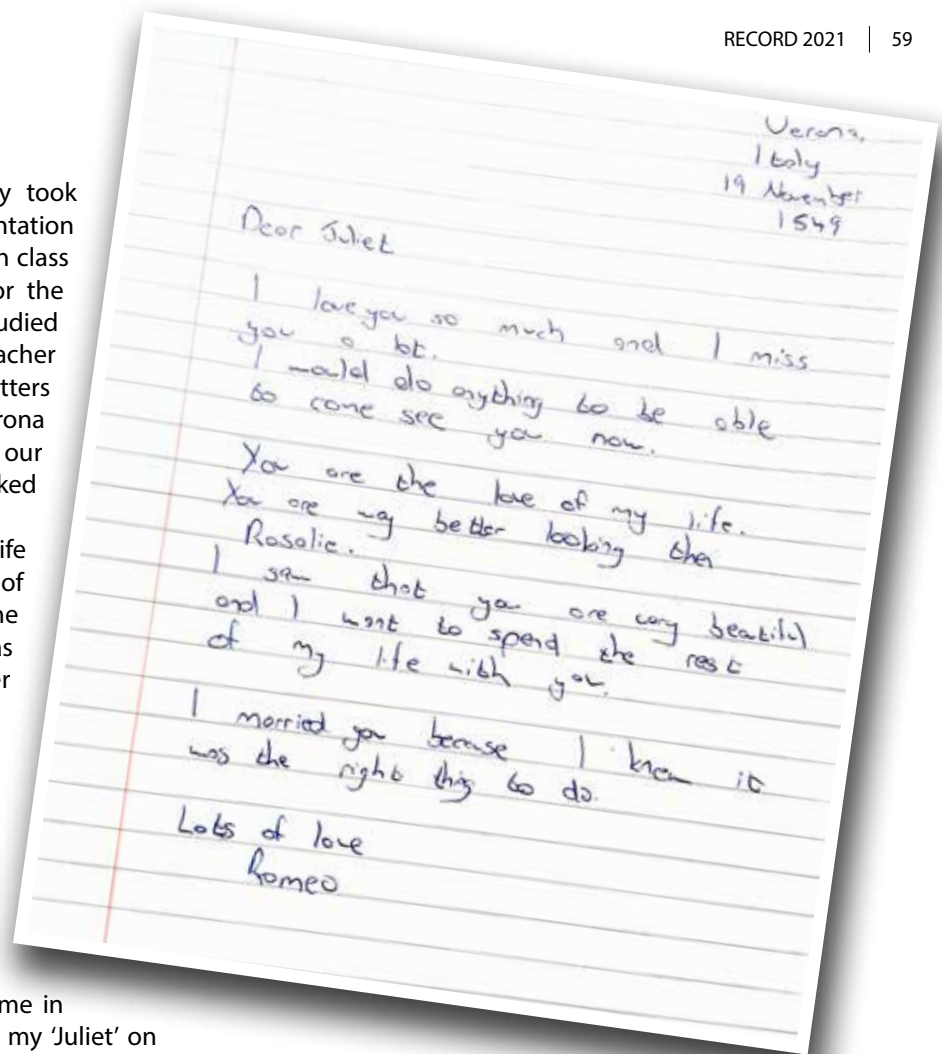 RECORD 2021 | 59
y took
ntation
n class
or the
udied
acher
tters
rona
our
ked
ife
of
ne
as
er
me in
my ‘Juliet’ on
Verona,
Italy
19 November
1549
Dear Juliet
I love you so much and I miss
you a lot.
I would do anything to be able
to come see you now.
You are the love of my life.
You are way better looking then
Rosalie.
I saw that you are very beautiful
and I want to spend the rest
of my life with you.
I married you because I knew it
was the right thing to do.
Lots of love
Romeo